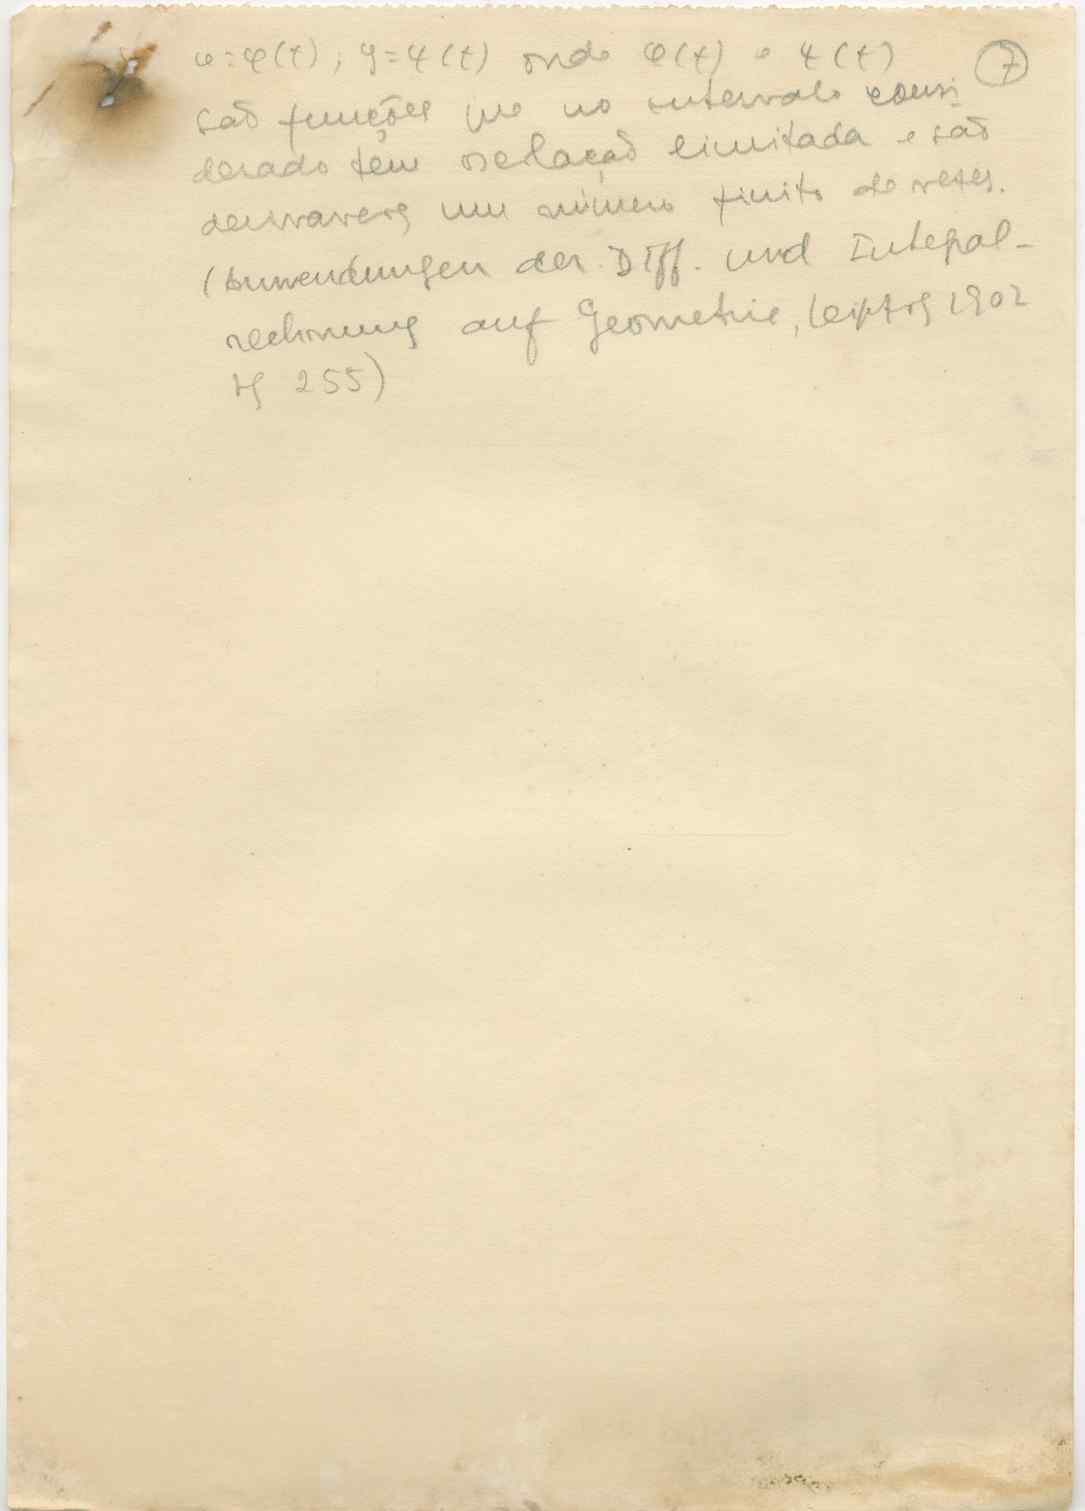 x = φ(t) ; y = ψ(t) onde φ(t) e ψ(t) 7
são funções que no intervalo consi
derado têm oscilação limitada e são
deriváveis um número finito de vezes.
(Anwendungen der Diff. und Integral-
rechnung auf Geometrie, Leipzig 1902
pg 255)